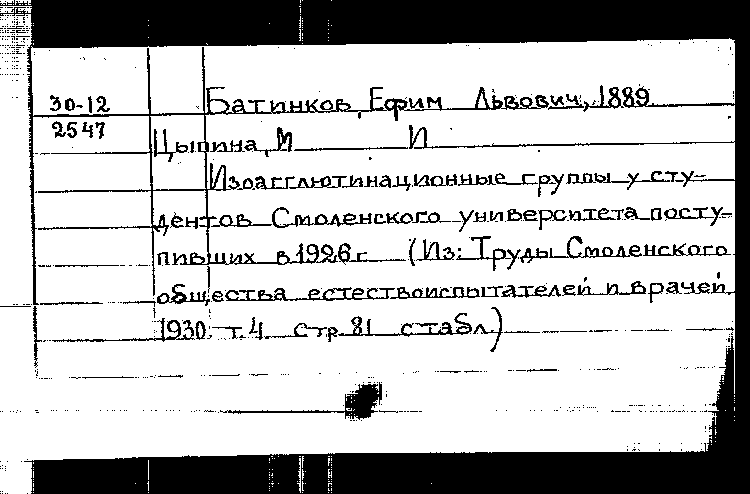 30-12 Батинков, Ефим Львович, 1889
2547 Цыпина, М И
Изоагглютинационные группы у сту-
дентов Смоленского университета посту-
пивших в 1926 г (Из: Труды Смоленского
общества естествоиспытателей и врачей
1930. т. 4. стр. 81 с табл.)